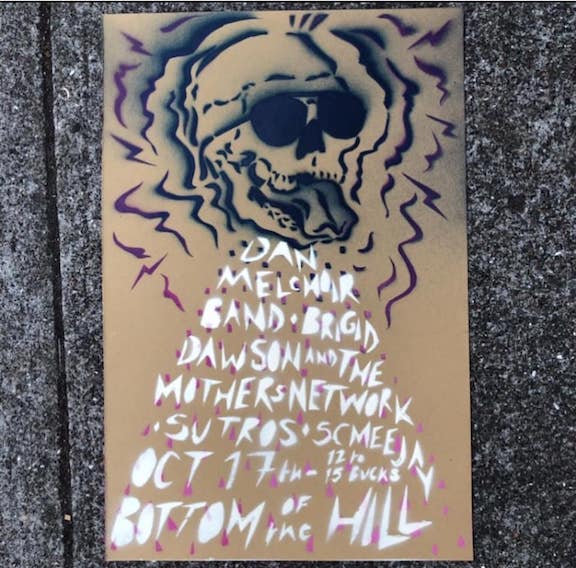 DAN
MELCHOIR
BAND • BRIGID
DAWSON AND THE
MOTHERS NETWORK
• SUTROS • SCMEEJAY
OCT 17th - 12 to 15 BUCKS
BOTTOM OF the HILL